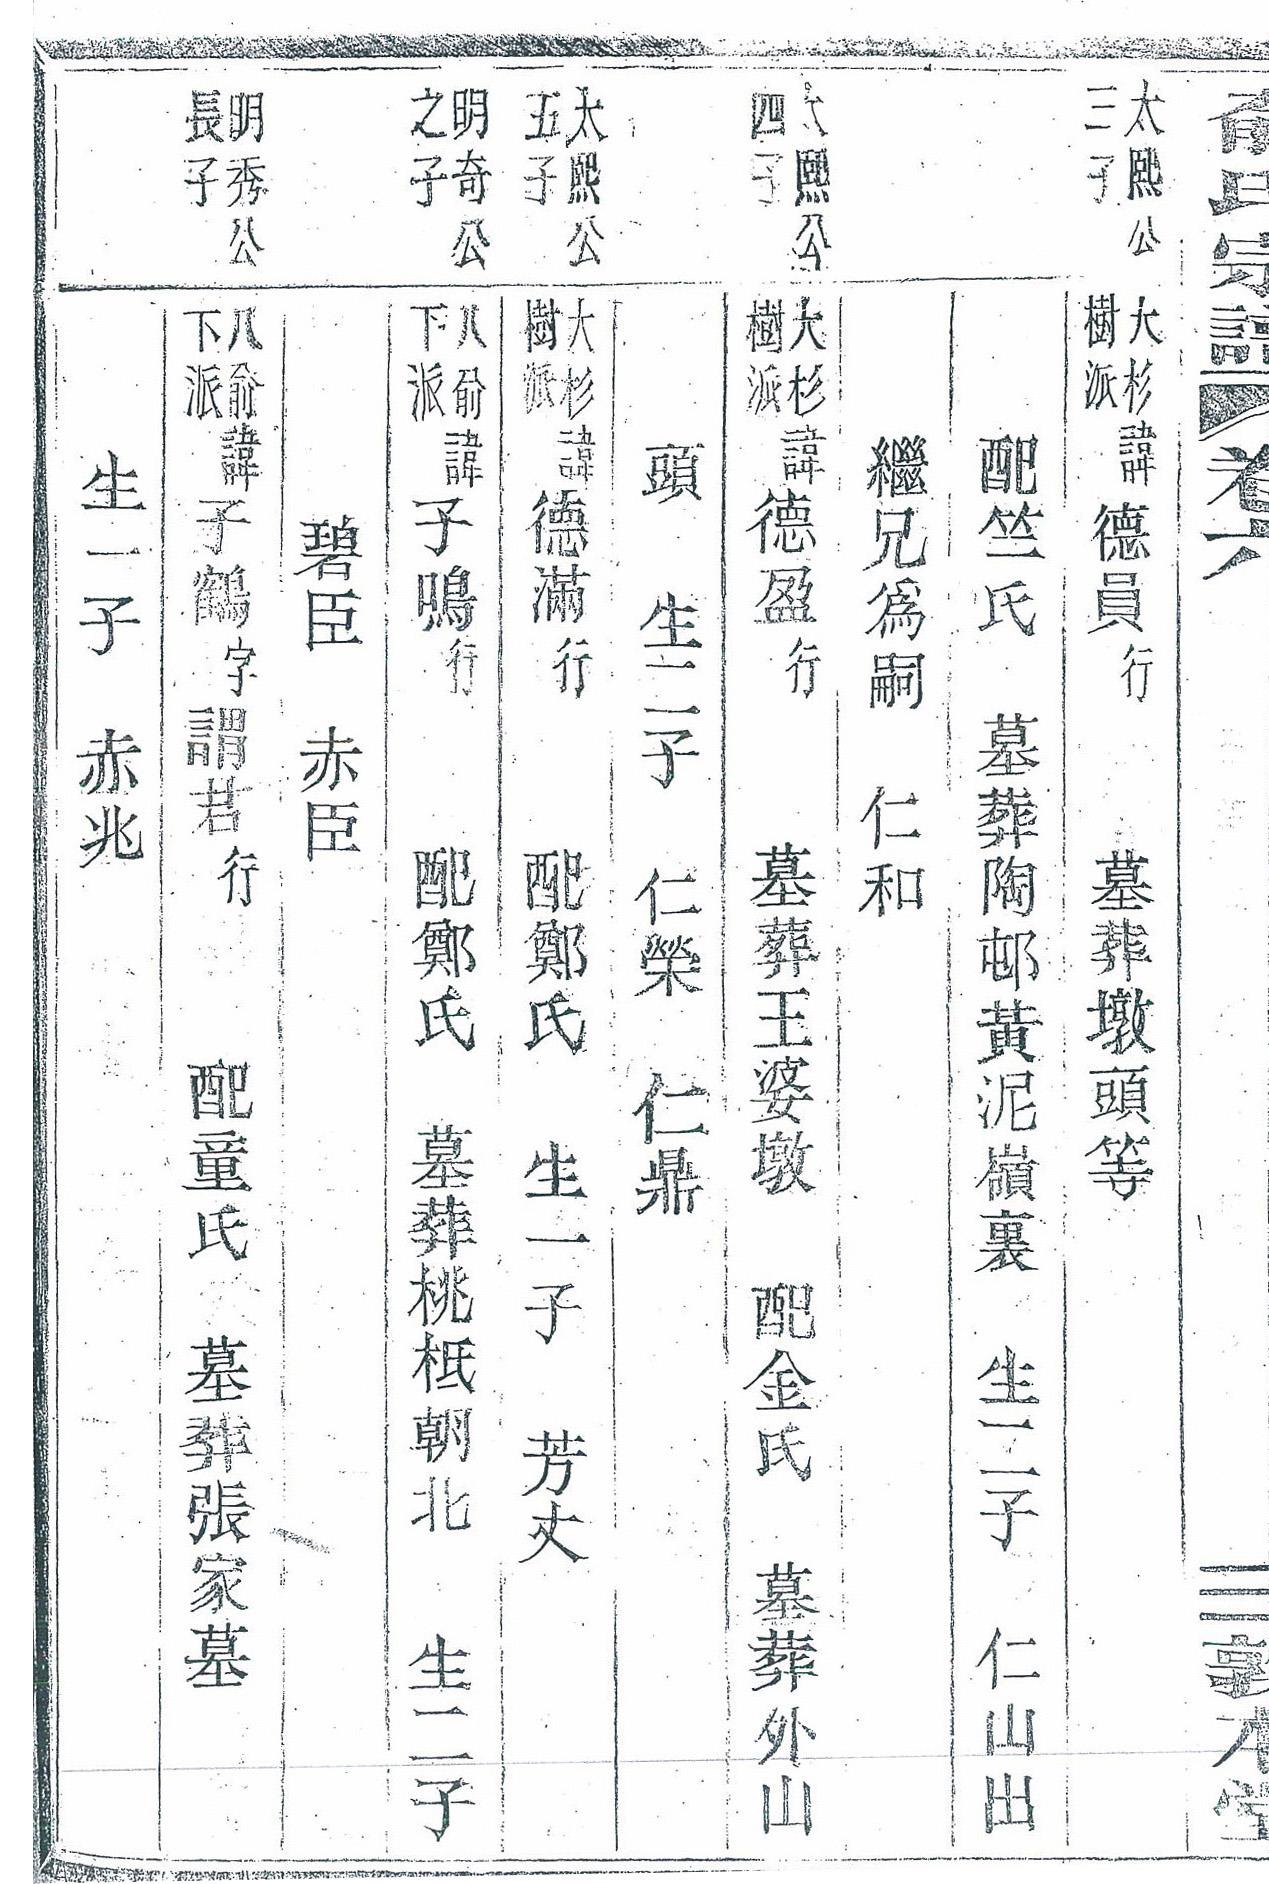 俞氏宗譜 卷六 敦本堂
太熙公三子
大杉樹派 諱德員行 墓葬墩頭等
配竺氏 墓葬陶邨黃泥嶺裏 生二子 仁山出
繼兄爲嗣 仁和
太熙公四子
大杉樹派 諱德盈行 墓葬王婆墩 配金氏 墓葬外山
頭 生二子 仁榮 仁鼎
太熙公五子
大杉樹派 諱德滿行 配鄭氏 生一子 芳丈
明奇公之子
八俞下派 諱子鳴行 配鄭氏 墓葬桃柢朝北 生二子
碧臣 赤臣
明秀公長子
八俞下派 諱子鶴字謂君行 配童氏 墓葬張家墓
生一子 赤兆